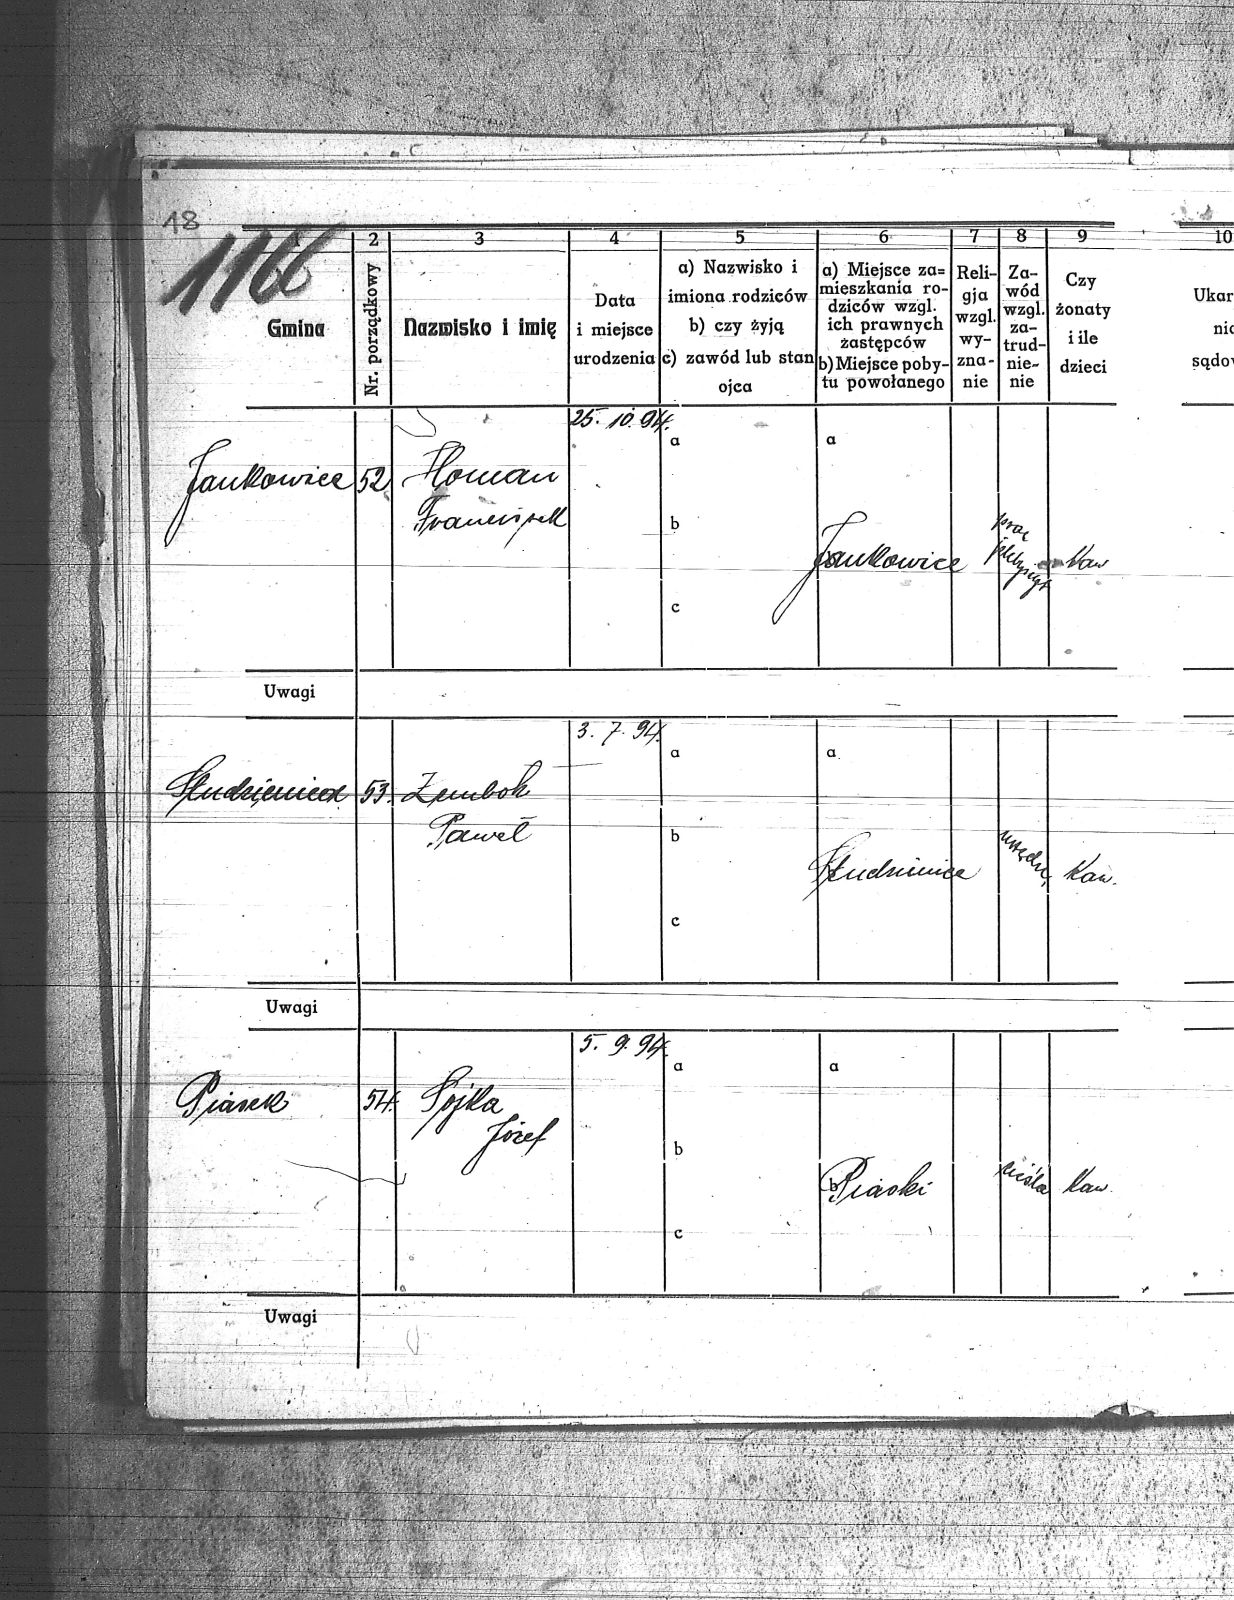 18
1166
1 2 3 4 5 6 7 8 9 10
Gmina
Nr. porządkowy
Nazwisko i imię
Data
i miejsce
urodzenia
a) Nazwisko i
imiona rodziców
b) czy żyją
c) zawód lub stan
ojca
a) Miejsce za=
mieszkania ro-
dziców wzgl.
ich prawnych
zastępców
b) Miejsce poby-
tu powołanego
Reli-
gja
wzgl.
wy-
zna-
nie
Za-
wód
wzgl.
za-
trud-
nie-
nie
Czy
żonaty
i ile
dzieci
Ukar
nic
sądov
25. 10. 94.
a a
Jankowice 52 Homan
Franciszek
b
Jankowice Kaw
c
Uwagi
3. 7. 94.
a a
Studzienice 53. Zembok
Paweł
b
Studzienice Kaw.
c
Uwagi
5. 9. 94.
a a
Piasek 54. Sojka
Józef
b
b Piaski cieśla Kaw.
c
Uwagi